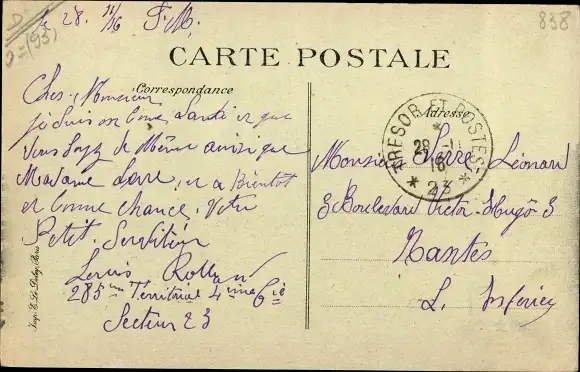 D
2=(93)
le 28 11/16 F.M.
838
CARTE POSTALE
Correspondance
Adresse
Cher Monsieur
je suis en bonne Santé et que
vous soyez de même ainsi que
Madame et a Bientot
et bonne chance, Votre
Petit Serviteur
Louis Rolland
285me Territorial 4ime Cie
Secteur 23
TRESOR ET POSTES
28 -11
16
* 23 *
Monsieur Pierre Léonard
3 Boulevard Victor-Hugo 3
Nantes
L. Inferieu
Imp. E. Le Deley, Paris